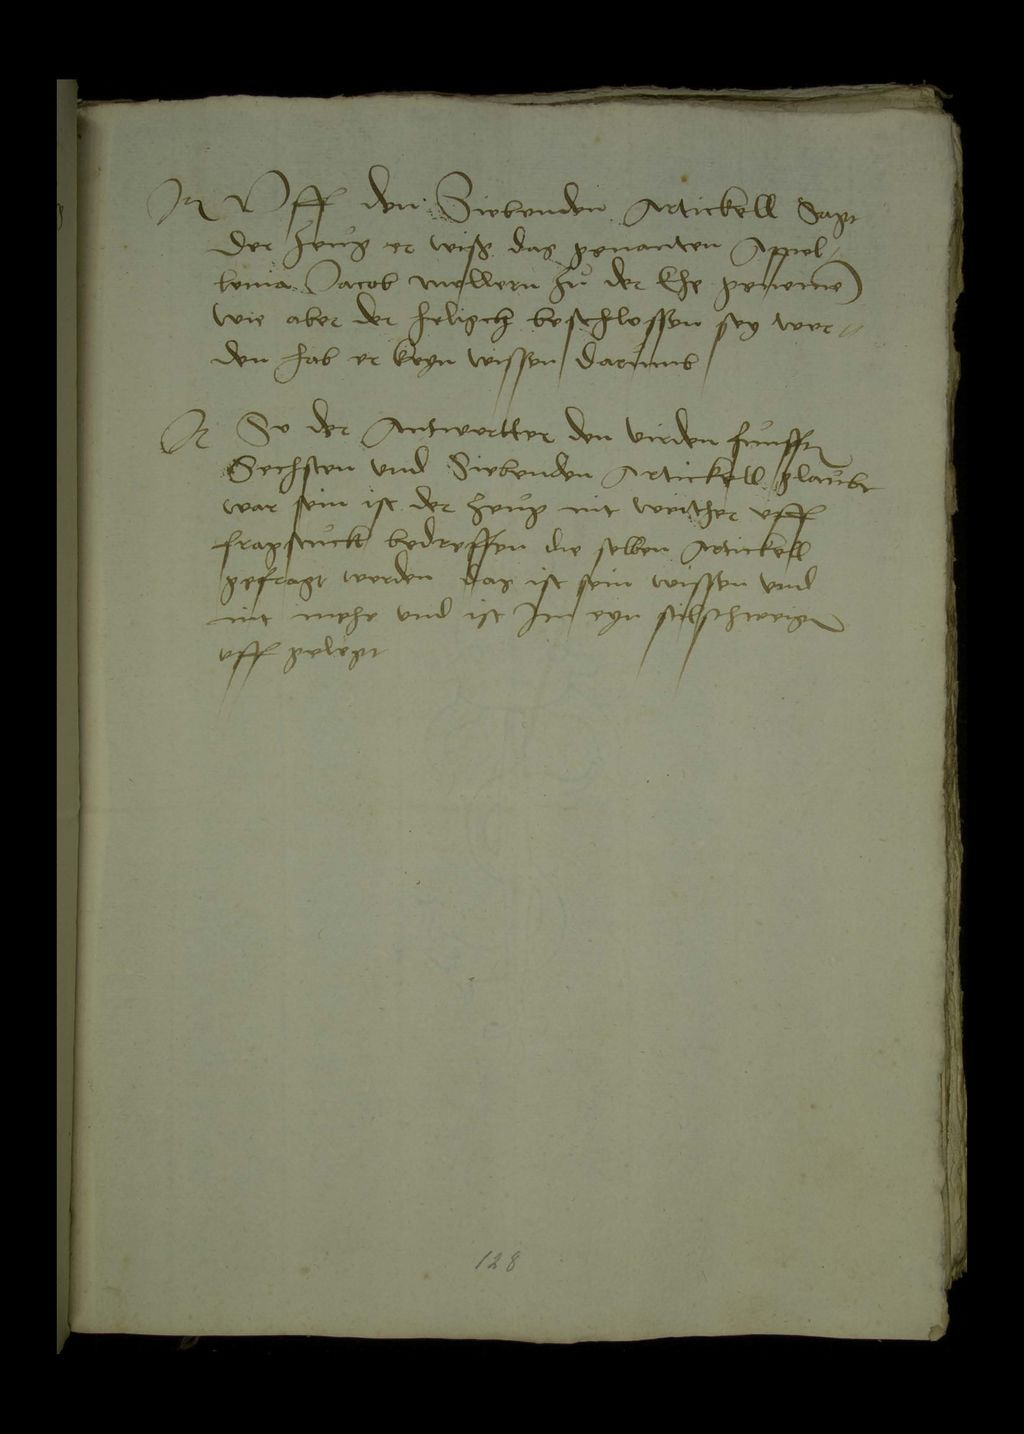 It Uff den Siebenden Artickell Sagt
der zeug er wiß das genanten Appol-
lonia Jacob mollern zu der Ehe genomē
wie aber der heligch beschlossen sey wor-
den hab er keyn wissen darumb
It So der Antwortter den virden funfften
Sechsten und Siebenden Artickell glaubt
war sein ist der zeug nit weither uff
fragstuck bedreffen die selben Artickell
gefragt worden das ist sein wissen und
nit mehr und ist Im eyn stilschweigen
uff gelegt
128